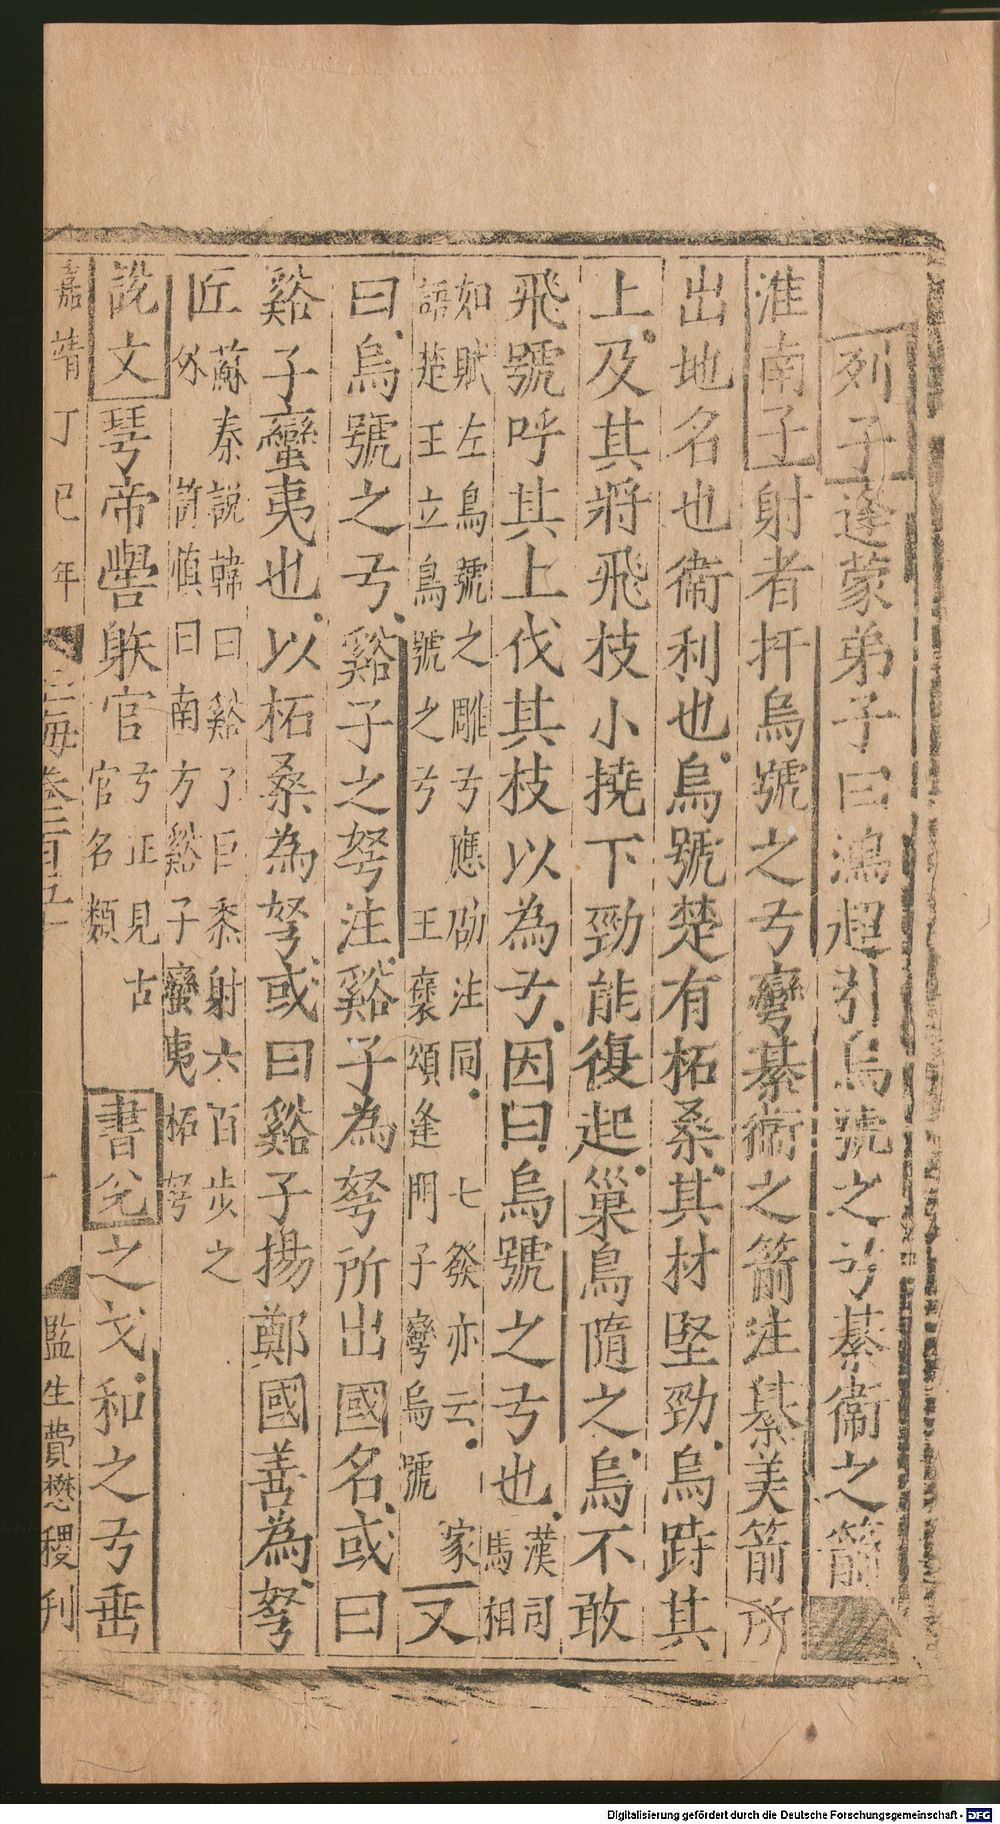 列子逢蒙弟子曰鴻超引烏號之弓綦衞之箭
淮南子射者扞烏號之弓彎綦衞之箭注綦美箭所
出地名也衞利也烏號楚有柘桑其材堅勁烏跱其
上及其將飛枝小撓下勁能復起巢烏隨之烏不敢
飛號呼其上伐其枝以為弓因曰烏號之弓也漢司馬相
如賦左烏號之雕弓應劭注同七發亦云家
語楚王立烏號之弓王褒頌逢門子彎烏號又
曰烏號之弓谿子之弩注谿子為弩所出國名或曰
谿子蠻夷也以柘桑為弩或曰谿子揚鄭國善為弩
匠蘇秦說韓曰谿子巨黍射六百步之
外許慎曰南方谿子蠻夷柘弩
說文琴帝嚳躲官弓正見古官名類書兌之戈和之弓垂
嘉靖丁巳年
玉海卷一百五十
監生費懋稷刊
Digitalisierung gefördert durch die Deutsche Forschungsgemeinschaft - DFG